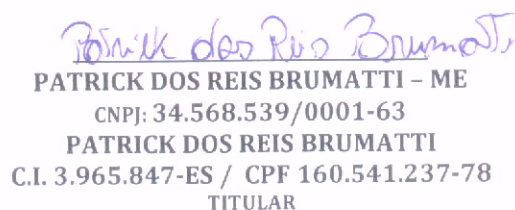 Patrick dos Reis Brumatti
PATRICK DOS REIS BRUMATTI – ME
CNPJ: 34.568.539/0001-63
PATRICK DOS REIS BRUMATTI
C.I. 3.965.847-ES / CPF 160.541.237-78
TITULAR